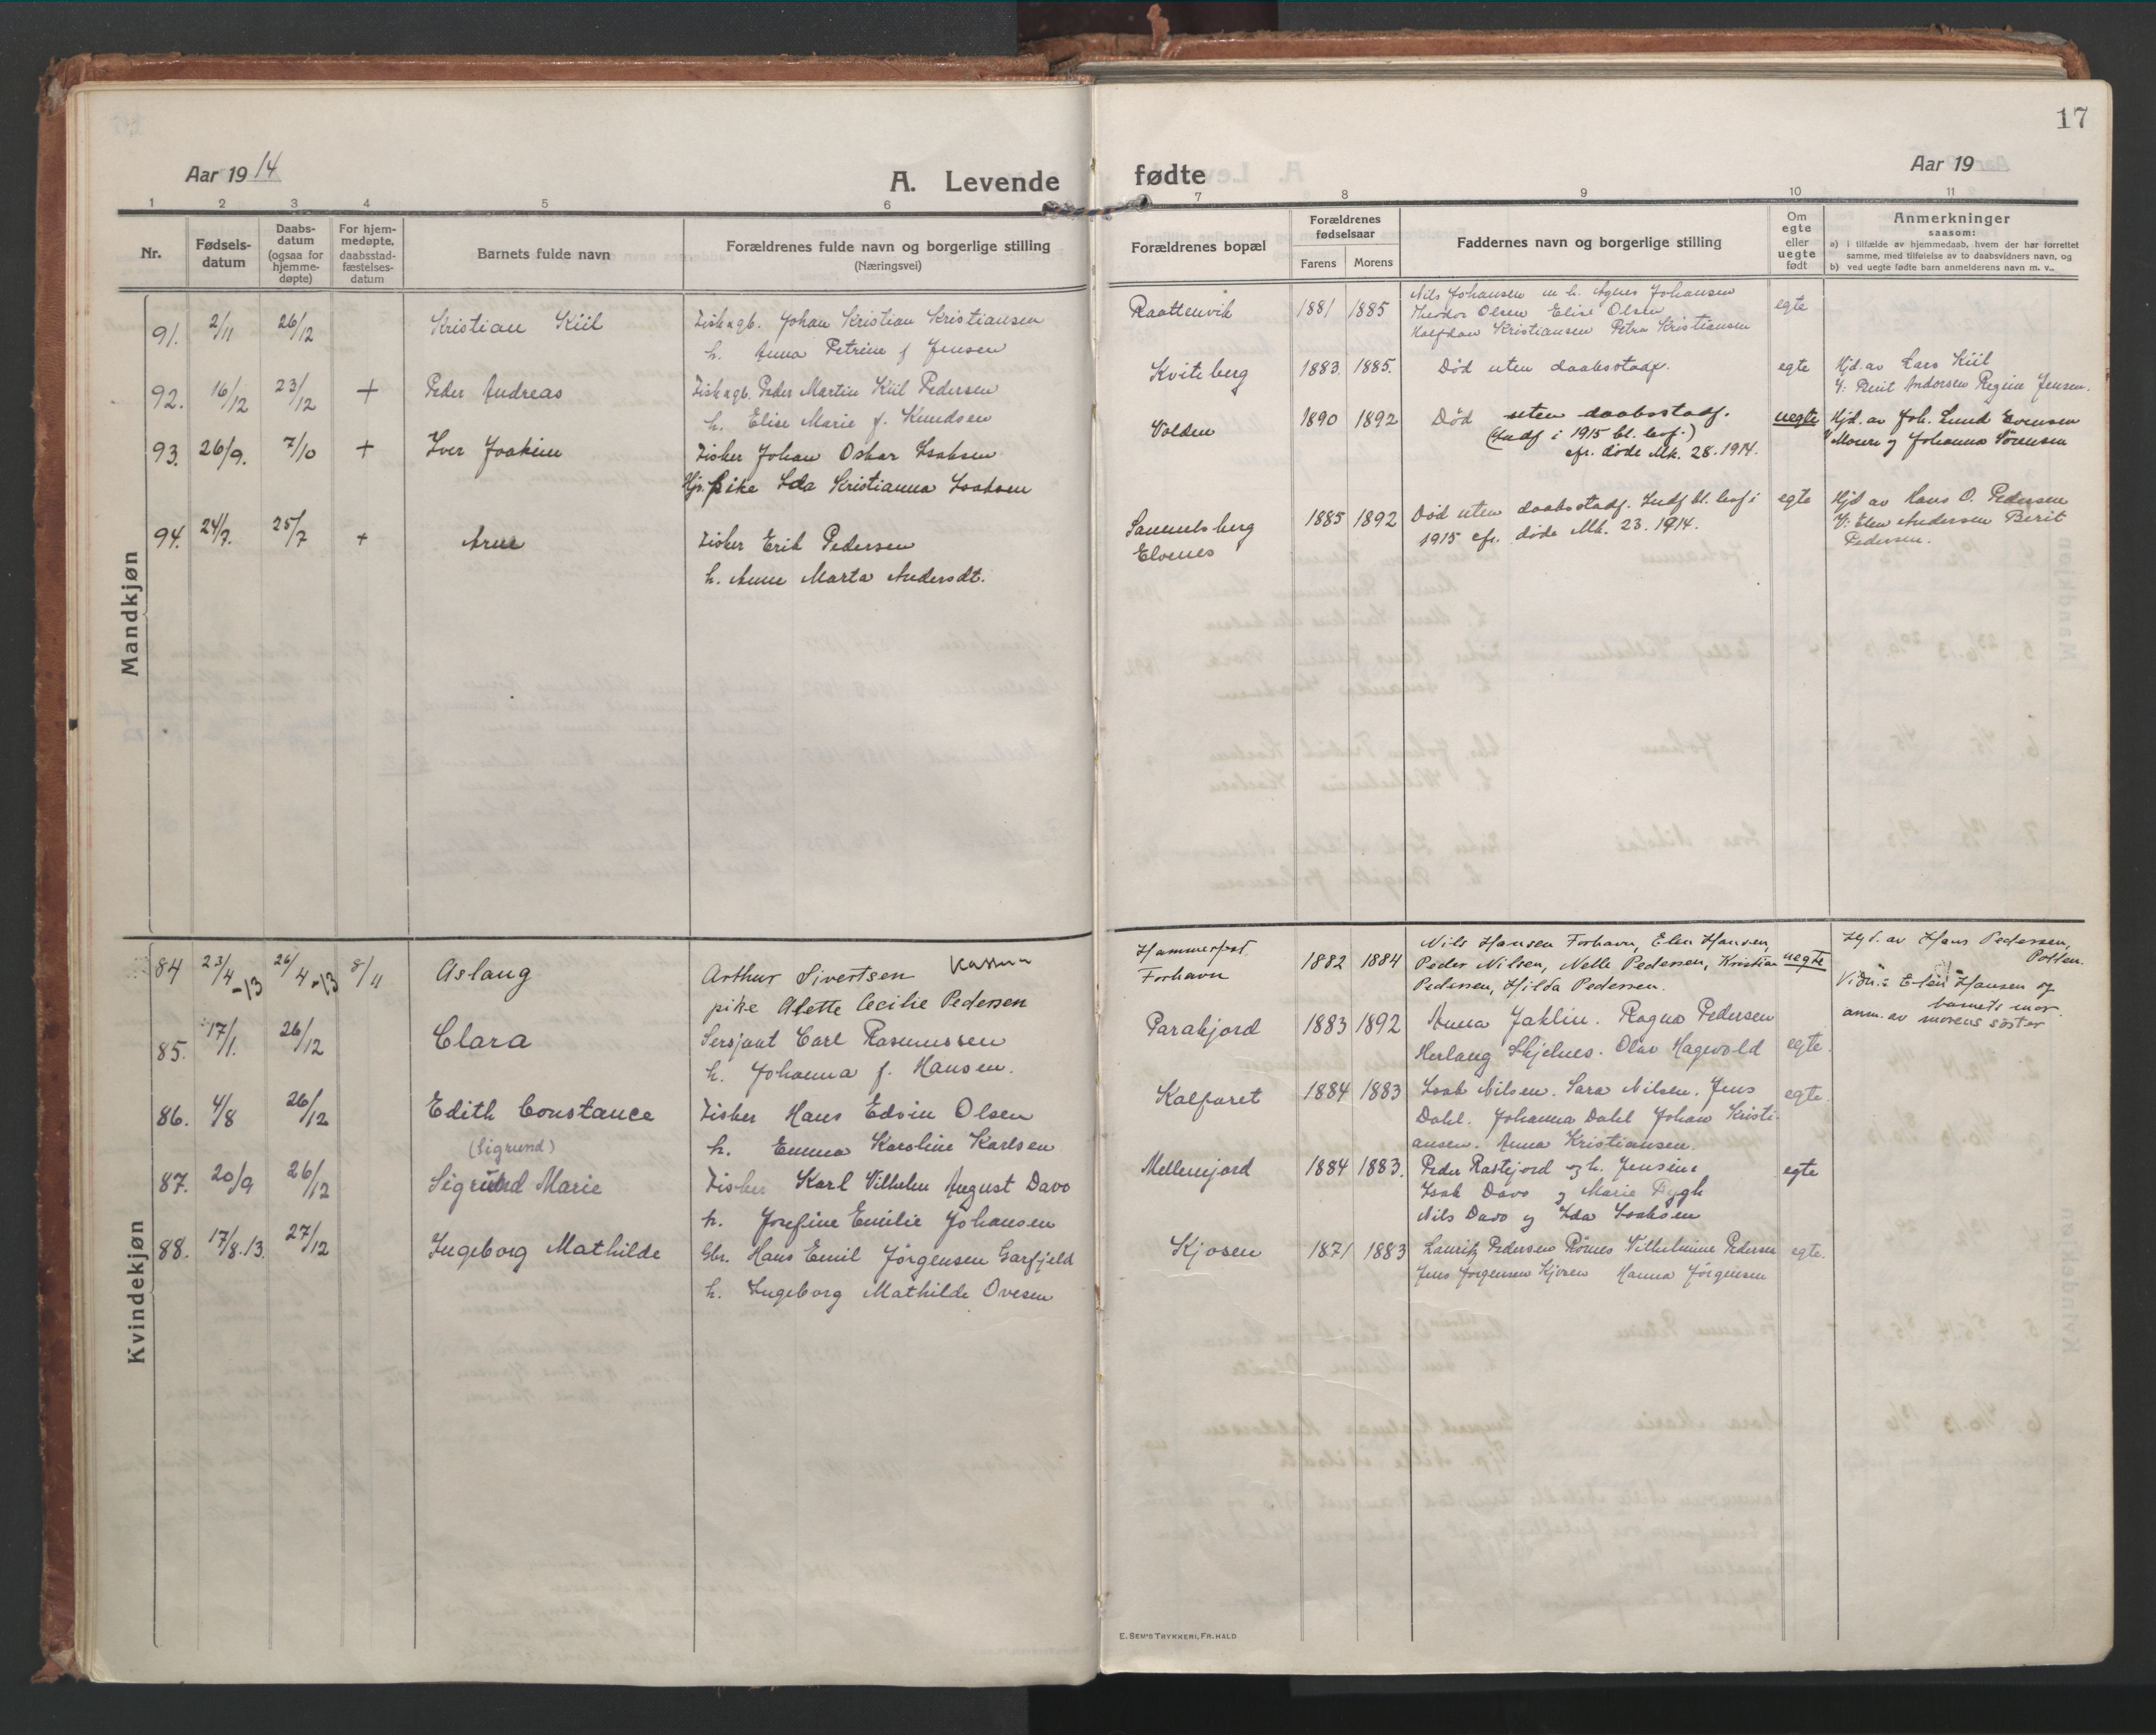 17
Aar 1914
A. Levende fødte
Aar 19
1 2 3 4 5 6 7 8 9 10 11
Nr.
Fødsels-
datum
Daabs-
datum
(ogsaa for
hjemme-
døpte)
For hjem-
medøpte,
daabsstad-
fæstelses-
datum
Barnets fulde navn
Forældrenes fulde navn og borgerlige stilling
(Næringsvei)
Forældrenes bopæl
Forældrenes
fødselsaar
Farens Morens
Faddernes navn og borgerlige stilling
Om
egte
eller
uegte
født
Anmerkninger
saasom:
a) i tilfælde av hjemmedaab, hvem der har forrettet
samme, med tilføielse av to daabsvidners navn, og
b) ved uegte fødte barn anmelderens navn m. v.
Mandkjøn
91. 2/11 26/12 Kristian Kiil
Fisk. agb. Johan Kristian Kristiansen
h. Anna Petrine f Jensen
Raattenvik 1881 1885
Nils Johansen m h. Agnes Johansen
Theodor Olsen Elise Olsen
Halfdan Kristiansen Petra Kristiansen
egte
92. 16/12 23/12 + Peder Andreas
Fisk agb. Peder Martin Kiil Pedersen
h. Elise Marie f. Knudsen
Kviteberg 1883. 1885.
Död uten daabsstadf.
egte
Hjd. av Lars Kiil
V: Berit Andersen Regine Jensen.
93. 26/9. 7/10 + Iver Joakim
Fisker Johan Oskar Isaksen
Hjs. pike Ida Kristianna Isaksen
Volden 1890 1892
Död uten daabsstadf.
(Indf i 1915 bl. levf.)
cfr. döde Mk. 28. 1914.
uegte
Hjd. av Joh. Lund Evensen
V Moren og Johanna Sörensen
94. 24/7. 25/7 + Arne
Fisker Erik Pedersen
h. Anne Marta Andersdt.
Samuelsberg
Elvenes
1885 1892
Död uten daabsstadf. Indf bl. levf i
1915 cfr. döde Mk. 23. 1914.
egte
Hjd av Hans O. Pedersen
V: Elen Andersen Berit
Pedersen.
Kvindekjøn
84 23/4 -13 26/4 -13 8/11 Aslaug
Arthur Sivertsen
pike Alette Cecilie Pedersen
Hammerfest.
Forhavn
1882 1884
Nils Hansen Forhavn, Elen Hansen,
Peder Nilsen, Nelle Pedersen, Kristian
Pedersen, Hilda Pedersen.
uegte
Hjd. av Hans Pedersen,
Pollen.
Vidn.: Elen Hansen og
barnets mor.
anm. av morens söster
85. 17/1. 26/12 Clara
Sersjant Carl Rasmussen
h. Johanna f. Hansen.
Parakjord 1883 1892
Anna Jaklin. Ragna Pedersen
Herlaug Skjelnes. Olav Hagevold
egte.
86. 4/8 26/12 Edith Constance
Fisker Hans Edvin Olsen
h. Emma Karoline Karlsen
Kalfaret 1884 1883
Isak Nilsen. Sara Nilsen. Jens
Dahl. Johanna Dahl Johan Kristi-
ansen. Anna Kristiansen.
egte.
(Sigrund)
87. 20/9 26/12 Sigrund Marie
Fisker Karl Vilhelm August Davo
h. Josefine Emilie Johansen
Mellemjord 1884 1883.
Peder Rastefjord og h. Jensine
Isak Davo og Marie Rygh
Nils Davo og Ida Isaksen
egte
88. 17/8. 13. 27/12 Ingeborg Mathilde
Gbr. Hans Emil Jörgensen Garfjeld
h. Ingeborg Mathilde Ovesen
Kjosen 1871 1883
Lauritz Pedersen Römes Vilhelmine Pedersen
Jens Jörgensen Kjosen Hanna Jörgensen
egte.
E. SEM'S TRYKKERI, FR.HALD